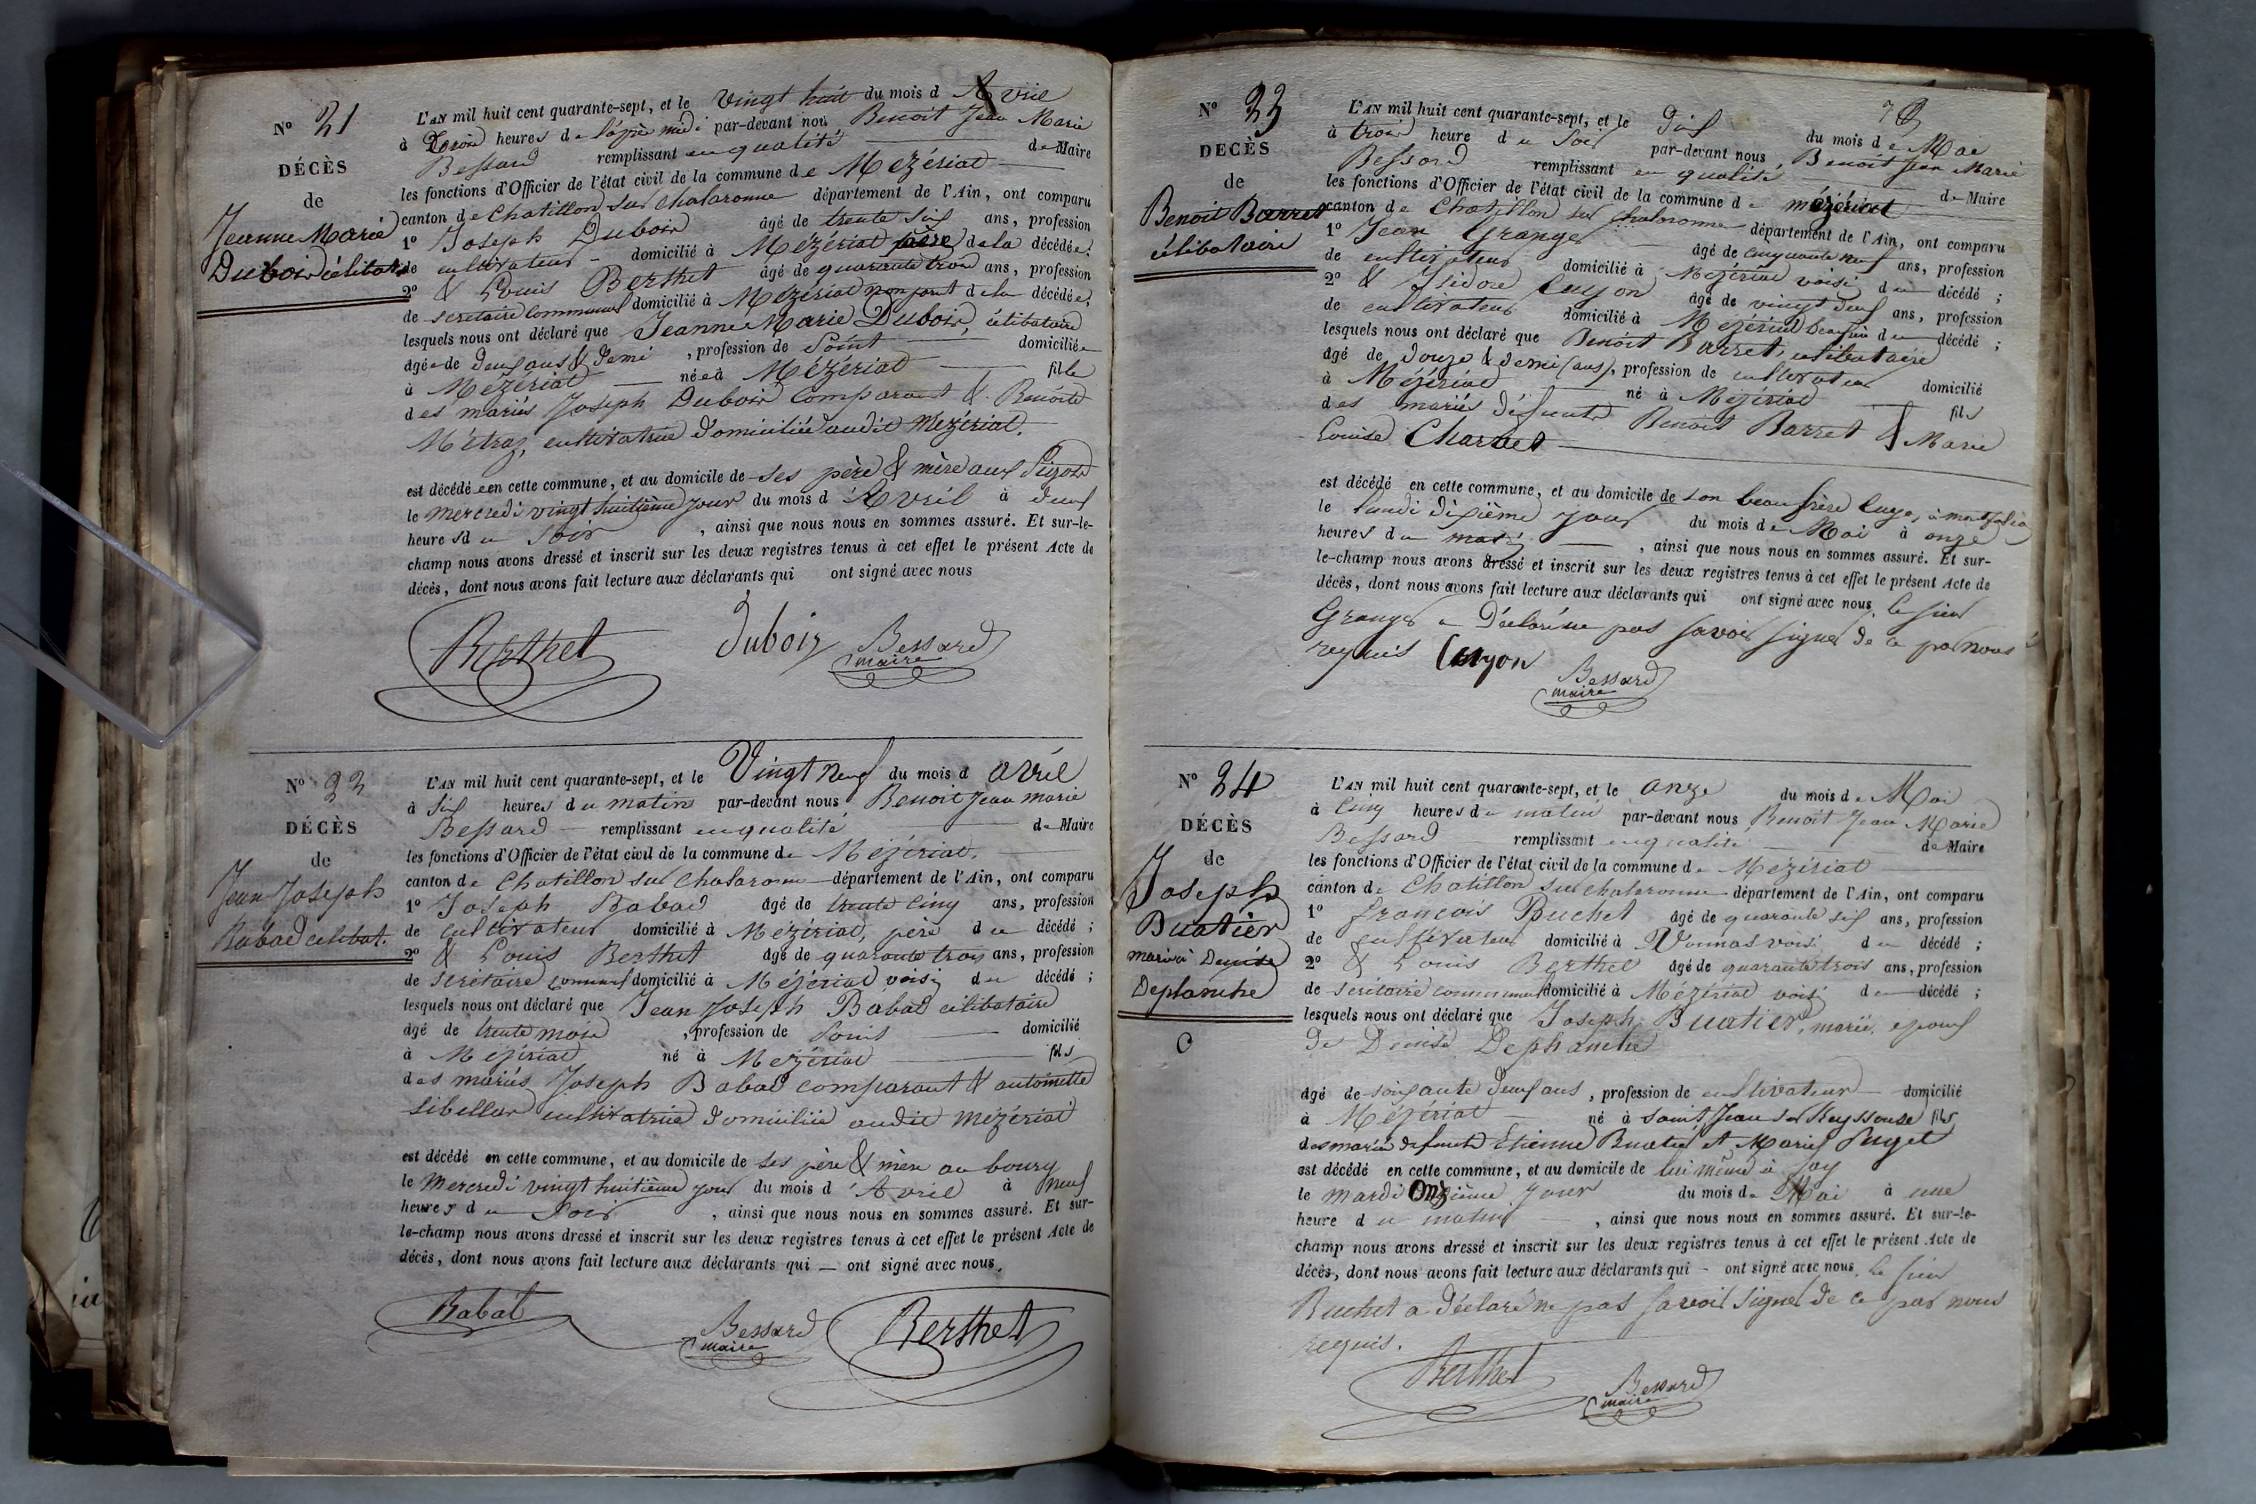 N° 21
DÉCÈS
de
Jeanne Marie
Dubois célibat.re
L'AN mil huit cent quarante-sept, et le Vingt huit du mois d Avril
à Trois heures de l'après midi par-devant nous Benoit Jean Marie
Bessard remplissant en qualité de Maire
les fonctions d'Officier de l'état civil de la commune de Mézériat
canton de Chatillon sur Chalaronne département de l'Ain, ont comparu
1° Joseph Dubois âgé de trente six ans, profession
de cultivateur domicilié à Mézériat père de la décédée;
2° & Louis Berthet âgé de quarante trois ans, profession
de secretaire communal domicilié à Mézériat non parent de la décédée,
lesquels nous ont déclaré que Jeanne Marie Dubois, célibataire
âgée de deux ans & demi, profession de Point domiciliée
à Mézériat née à Mézériat fille
des mariés Joseph Dubois comparant & Benoite
Métraz, cultivatrice domiciliée audit Mézériat.
est décédée en cette commune, et au domicile de ses père & mère aux
le mercredi vingt huitième jour du mois d'Avril à deux
heures du Soir, ainsi que nous nous en sommes assuré. Et sur-le-
champ nous avons dressé et inscrit sur les deux registres tenus à cet effet le présent Acte de
décès, dont nous avons fait lecture aux déclarants qui ont signé avec nous
Berthet Dubois Bessard
maire
N° 22
DÉCÈS
de
Jean Joseph
Babad célibat.
L'AN mil huit cent quarante-sept, et le Vingt neuf du mois d avril
à six heures du matin par-devant nous Benoit Jean Marie
Bessard remplissant en qualité de Maire
les fonctions d'Officier de l'état civil de la commune de Mézériat.
canton de Chatillon sur Chalaronne département de l'Ain, ont comparu
1° Joseph Babad âgé de trente cinq ans, profession
de cultivateur domicilié à Mézériat, père du décédé;
2° & Louis Berthet âgé de quarante trois ans, profession
de secrétaire communal domicilié à Mézériat voisin du décédé;
lesquels nous ont déclaré que Jean Joseph Babad célibataire
âgé de trente mois, profession de Point domicilié
à Mézériat né à Mézériat fils
des mariés Joseph Babad comparant & antoinette
Sibellas cultivatrice domiciliée audit Mézériat
est décédé en cette commune, et au domicile de ses père & mère au bourg
le Mercredi vingt huitième jour du mois d'Avril à neuf
heures du Soir, ainsi que nous nous en sommes assuré. Et sur-
le-champ nous avons dressé et inscrit sur les deux registres tenus à cet effet le présent Acte de
décès, dont nous avons fait lecture aux déclarants qui — ont signé avec nous.
Babat Bessard Berthet
maire
N° 23
DÉCÈS
de
Benoit Barret
célibataire
L'AN mil huit cent quarante-sept, et le Dix du mois de Mai
à trois heure du Soir par-devant nous, Benoit Jean Marie
Bessard remplissant en qualité de Maire
les fonctions d'Officier de l'état civil de la commune de mézériat
canton de Chatillon sur Chalaronne département de l'Ain, ont comparu
1° Jean Granger âgé de cinquante neuf ans, profession
de cultivateur domicilié à Mézériat voisin du décédé;
2° & Isidore Cuyon âgé de vingt deux ans, profession
de cultivateur domicilié à Mézériat beau frère du décédé;
lesquels nous ont déclaré que Benoit Barret, célibataire
âgé de douze & demi (ans), profession de cultivateur domicilié
à Mézériat né à Mézériat fils
des mariés défunts Benoit Barret & Marie
Louise Charnet
est décédé en cette commune, et au domicile de son beau frère Cuyon, à
le lundi dixième jour du mois de Mai à onze
heures du matin, ainsi que nous nous en sommes assuré. Et sur-
le-champ nous avons dressé et inscrit sur les deux registres tenus à cet effet le présent Acte de
décès, dont nous avons fait lecture aux déclarants qui ont signé avec nous, le sieur
Granger a déclaré ne pas savoir signer de ce par nous
requis Cuyon Bessard
maire
N° 24
DÉCÈS
de
Joseph
Buatier
marié à Denise
Deplanche
L'AN mil huit cent quarante-sept, et le onze du mois de Mai
à Cinq heures du matin par-devant nous Benoit Jean Marie
Bessard remplissant en qualité de Maire
les fonctions d'Officier de l'état civil de la commune de Mézériat
canton de Chatillon sur Chalaronne département de l'Ain, ont comparu
1° françois Buchet âgé de quarante six ans, profession
de cultivateur domicilié à Vonnas voisin du décédé;
2° & Louis Berthet âgé de quarante trois ans, profession
de secrétaire communal domicilié à Mézériat voisin du décédé;
lesquels nous ont déclaré que Joseph Buatier, marié, époux
de Denise Deplanche
âgé de soixante deux ans, profession de cultivateur domicilié
à Mézériat né à saint Jean sur Reyssouse fils
des mariés défunts Etienne Buatier et Marie Puget
est décédé en cette commune, et au domicile de lui même à Jay
le mardi Onzième Jour du mois de Mai à une
heure du matin, ainsi que nous nous en sommes assuré. Et sur-le-
champ nous avons dressé et inscrit sur les deux registres tenus à cet effet le présent Acte de
décès, dont nous avons fait lecture aux déclarants qui - ont signé avec nous. le sieur
Buchet a déclaré ne pas savoir signer de ce par nous
requis.
Berthet Bessard
maire